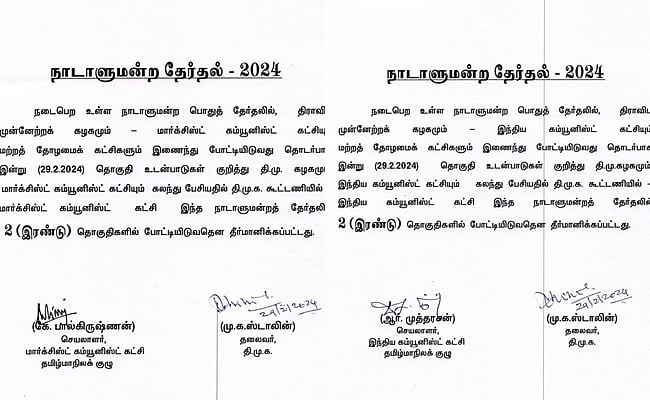 நாடாளுமன்ற தேர்தல் - 2024
நடைபெற உள்ள நாடாளுமன்ற பொதுத் தேர்தலில், திராவி
முன்னேற்றக் கழகமும் – மார்க்சிஸ்ட் கம்யூனிஸ்ட் கட்சியு
மற்றத் தோழமைக் கட்சிகளும் இணைந்து போட்டியிடுவது தொடர்பா
இன்று (29.2.2024) தொகுதி உடன்பாடுகள் குறித்து தி.மு. கழகமு
மார்க்சிஸ்ட் கம்யூனிஸ்ட் கட்சியும் கலந்து பேசியதில் தி.மு.க. கூட்டணியில்
மார்க்சிஸ்ட் கம்யூனிஸ்ட் கட்சி இந்த நாடாளுமன்றத் தேர்தலி
2 (இரண்டு) தொகுதிகளில் போட்டியிடுவதென தீர்மானிக்கப்பட்டது.
29/2/2024
(கே. பாலகிருஷ்ணன்) (மு.க.ஸ்டாலின்)
செயலாளர், தலைவர்,
மார்க்சிஸ்ட் கம்யூனிஸ்ட் கட்சி தி.மு.க.
தமிழ்மாநிலக் குழு
நாடாளுமன்ற தேர்தல் - 2024
நடைபெற உள்ள நாடாளுமன்ற பொதுத் தேர்தலில், திராவிட
முன்னேற்றக் கழகமும் – இந்திய கம்யூனிஸ்ட் கட்சியும்
மற்றத் தோழமைக் கட்சிகளும் இணைந்து போட்டியிடுவது தொடர்பாக
இன்று (29.2.2024) தொகுதி உடன்பாடுகள் குறித்து தி.மு.கழகமும்
இந்திய கம்யூனிஸ்ட் கட்சியும் கலந்து பேசியதில் தி.மு.க. கூட்டணியில் -
இந்திய கம்யூனிஸ்ட் கட்சி இந்த நாடாளுமன்றத் தேர்தலில்
2 (இரண்டு) தொகுதிகளில் போட்டியிடுவதென தீர்மானிக்கப்பட்டது.
29/2/2024
(ஆர். முத்தரசன்) (மு.க.ஸ்டாலின்)
செயலாளர், தலைவர்,
இந்திய கம்யூனிஸ்ட் கட்சி தி.மு.க.
தமிழ்மாநில குழு